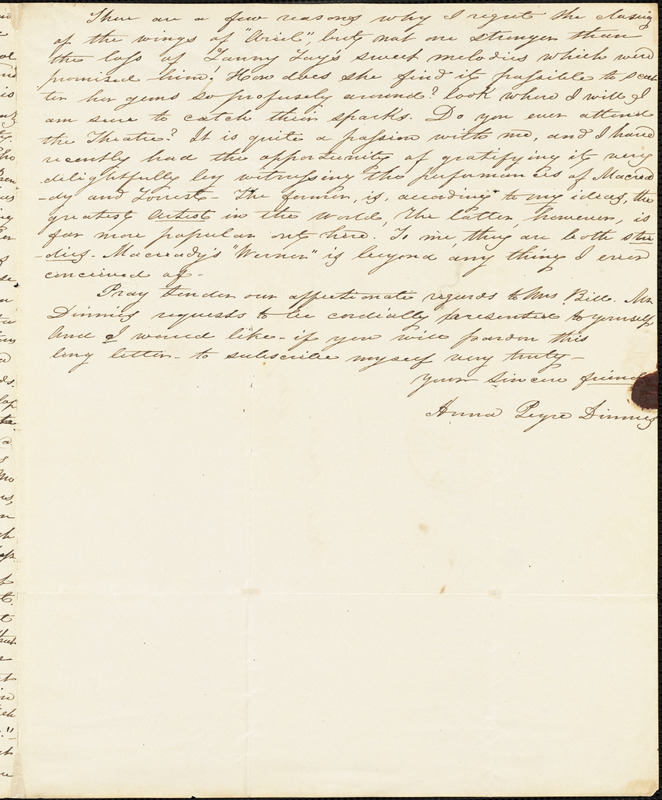 There are a few reasons why I regret the closing
of the wings of "Ariel", but not one stronger than
the loss of Fanny Fay's sweet melodies which were
promised him! How does she find it possible to scat
ter her gems so profusely around? look where I will I
am sure to catch their sparks. Do you ever attend
the Theatre? It is quite a passion with me, and I have
recently had the opportunity of gratifying it very
delightfully by witnessing the performances of Macrea
-dy and Forrest - The former, is, according to my ideas, the
greatest Artist in the world, the latter, however, is
far more popular out here. To me, they are both stu
-dies. Macready's "Werner" is beyond any thing I ever
conceived of -
Pray tender our affectionate regards to Mrs Bill. Mr.
Dinnies requests to be cordially presented to yourself
And I would like - if you will pardon this
long letter - to subscribe myself very truly -
your sincere friend
Anna Peyre Dinnies